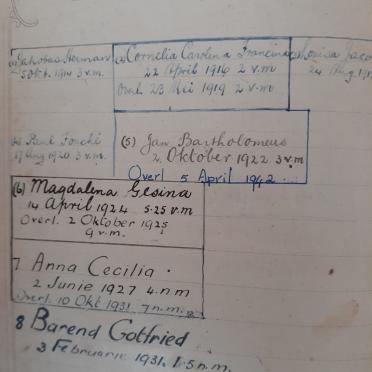 Jakobus Herman
5 Okt. 1914 3 v.m.
(2) Cornelia Carolina Francina
22 April 1916 2 v.m
Overl 23 Mei 1919 2 v.m
Louisa Jaco
24 Aug 191
(4) Paul Fouché
19 Aug 1920 3 v.m.
(5) Jan Bartholomeus
2. Oktober 1922 3 v.m
Overl 5 April 1942
(6) Magdalena Gesina
14 April 1924 5.25 v.m
Overl. 2 Oktober 1925
9 v.m.
7 Anna Cecilia .
2 Junie 1927 4.n.m
Overl. 10 Okt 1931 7 n.m.
8 Barend Gotfried
3 Februarie 1931. 1.5 n.m.